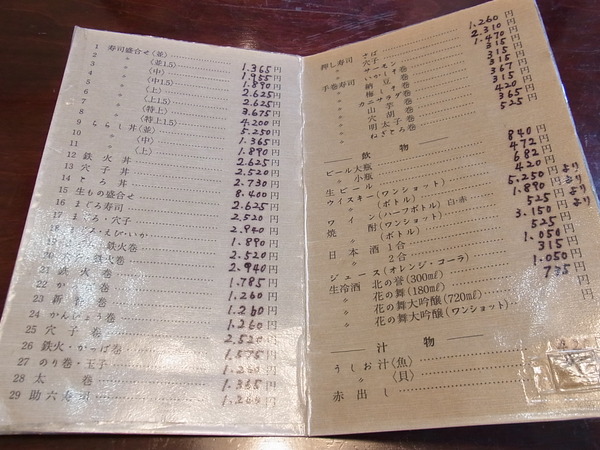 1 寿司盛合せ〈並〉 1.365円
2 〃 〈並1.5〉 1.955円
3 〃 〈中〉 1.890円
4 〃 〈中1.5〉 2.625円
5 〃 〈上〉 2.625円
6 〃 〈上1.5〉 3.675円
7 〃 〈特上〉 4.200円
8 〃 〈特上1.5〉 5.250円
9 ちらし丼〈並〉 1.365円
10 〃 〈中〉 1.890円
11 〃 〈上〉 2.625円
12 鉄火丼 2.520円
13 穴子丼 2.730円
14 とろ丼 8.400円
15 生もの盛合せ 2.625円
16 まぐろ寿司 2.520円
17 まぐろ・穴子 2.940円
18 えび・いか 1.890円
19 鉄火巻 2.520円
20 鉄火巻 2.940円
21 鉄火巻 1.785円
22 巻 1.260円
23 新香巻 1.260円
24 かんぴょう巻 1.260円
25 穴子巻 2.520円
26 鉄火・かっぱ巻 1.575円
27 のり巻・玉子 1.260円
28 太巻 1.365円
29 助六寿司 1.260円
押し寿司 さば 1.260円
〃 穴子 2.310円
〃 サーモン 1.470円
手巻寿司 いかしそ巻 315円
〃 納豆巻 315円
〃 梅しそ巻 315円
〃 カニサラダ巻 367円
〃 山芋巻 315円
〃 穴胡巻 420円
〃 明太子巻 365円
〃 ねぎとろ巻 525円
飲物
ビール大瓶 840円
〃 小瓶 472円
生ビール 682円
ウイスキー(ワンショット) 420円
〃 (ボトル) 5.250円より
ワイン(ハーフボトル)白・赤 1.890円
焼酎(ワンショット) 525円より
〃 (ボトル) 3.150円より
日本酒 1合 525円
〃 2合 1.050円
ジュース(オレンジ・コーラ) 315円
生冷酒 北の誉(300㎖) 1.050円
〃 花の舞(180㎖) 735円
〃 花の舞大吟醸(720㎖) 円
〃 花の舞大吟醸(ワンショット) 円
汁物
うしお汁〈魚〉
〃 〈貝〉
赤出し